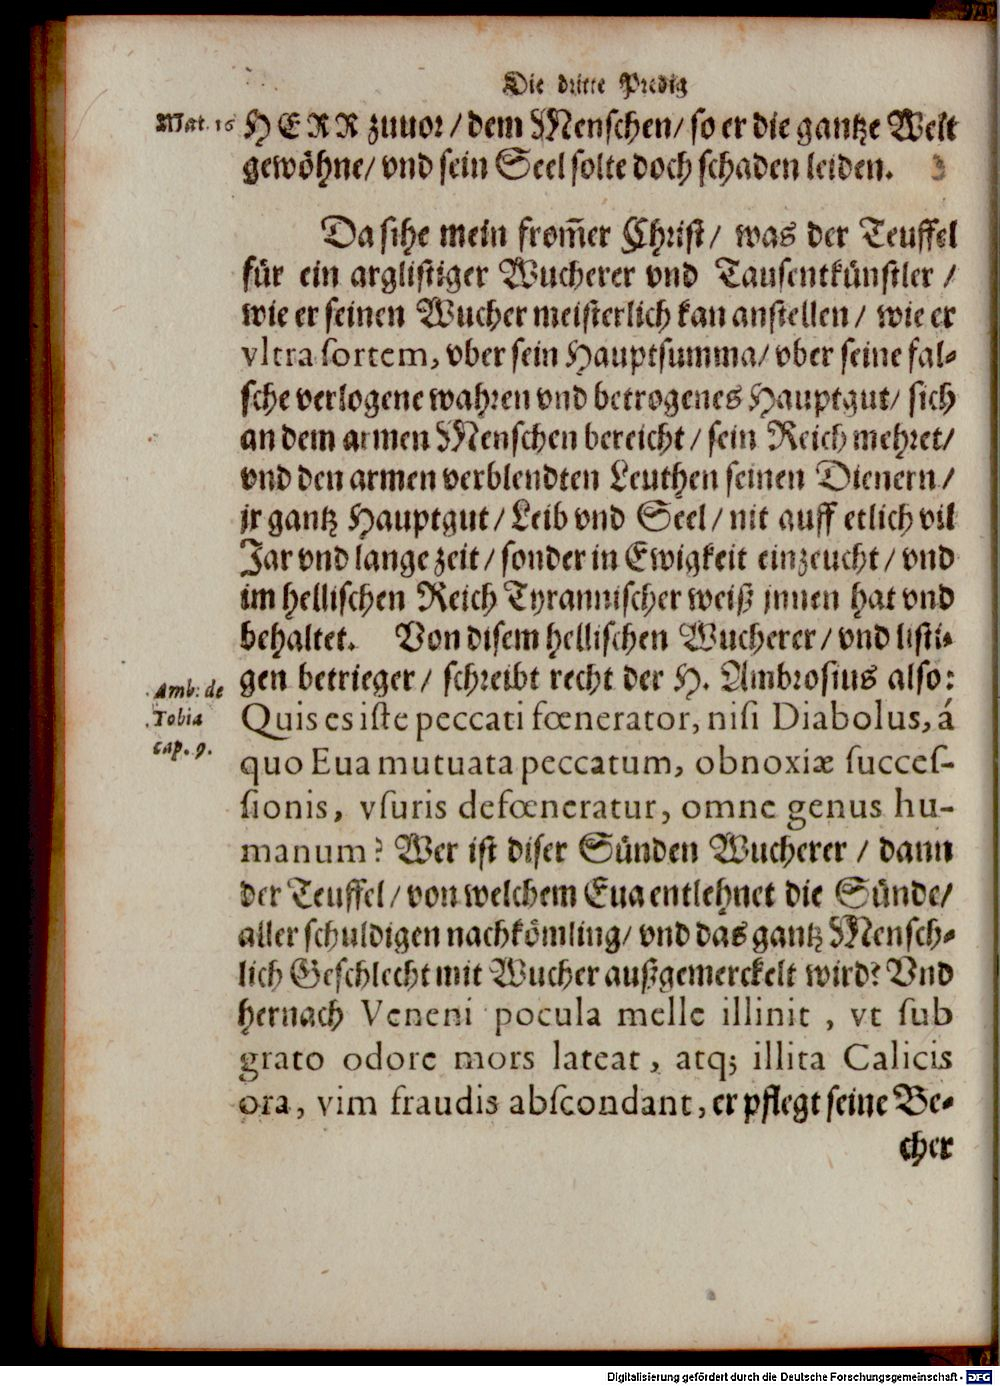 Die dritte Predig
Mat. 16
HERR zuuor / dem Menschen / so er die gantze Welt
gewöhne / vnd sein Seel solte doch schaden leiden.
Da sihe mein from̃er Christ / was der Teuffel
für ein arglistiger Wucherer vnd Tausentkünstler /
wie er seinen Wucher meisterlich kan anstellen / wie er
vltra sortem, vber sein Hauptsumma / vber seine fal-
sche verlogene wahren vnd betrogenes Hauptgut / sich
an dem armen Menschen bereicht / sein Reich mehret /
vnd den armen verblendten Leuthen seinen Dienern /
jr gantz Hauptgut / Leib vnd Seel / nit auff etlich vil
Jar vnd lange zeit / sonder in Ewigkeit einzeucht / vnd
im hellischen Reich Tyrannischer weiß jnnen hat vnd
behaltet. Von disem hellischen Wucherer / vnd listi-
gen betrieger / schreibt recht der H. Ambrosius also:
Amb: de
Tobia
cap. 9.
Quis es iste peccati fœnerator, nisi Diabolus, á
quo Eua mutuata peccatum, obnoxiæ succes-
sionis, vsuris defœneratur, omne genus hu-
manum? Wer ist diser Sünden Wucherer / dann
der Teuffel / von welchem Eua entlehnet die Sünde /
aller schuldigen nachkömling / vnd das gantz Mensch-
lich Geschlecht mit Wucher außgemerckelt wird? Vnd
hernach Veneni pocula melle illinit, vt sub
grato odore mors lateat, atq; illita Calicis
ora, vim fraudis abscondant, er pflegt seine Be-
cher
Digitalisierung gefördert durch die Deutsche Forschungsgemeinschaft - DFG